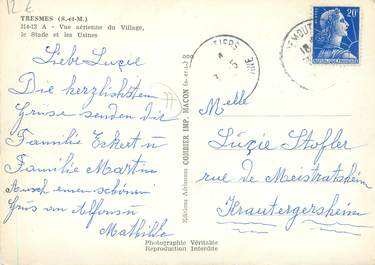 12 €
TRESMES (S.-et-M.)
314-12 A - Vue aérienne du Village,
le Stade et les Usines
Liebe Luzie
Die herzlichsten
Grüse senden die
Familie Eckert u
Familie Martin
Auch einen schönen
Grüs an Alfonsü
Mathilde
Editions Aériennes COMBIER IMP. MACON
Photographie Véritable
Reproduction Interdite
20F
Melle
Luzie Stofler
rue de Meistratsheim
Krautergersheim